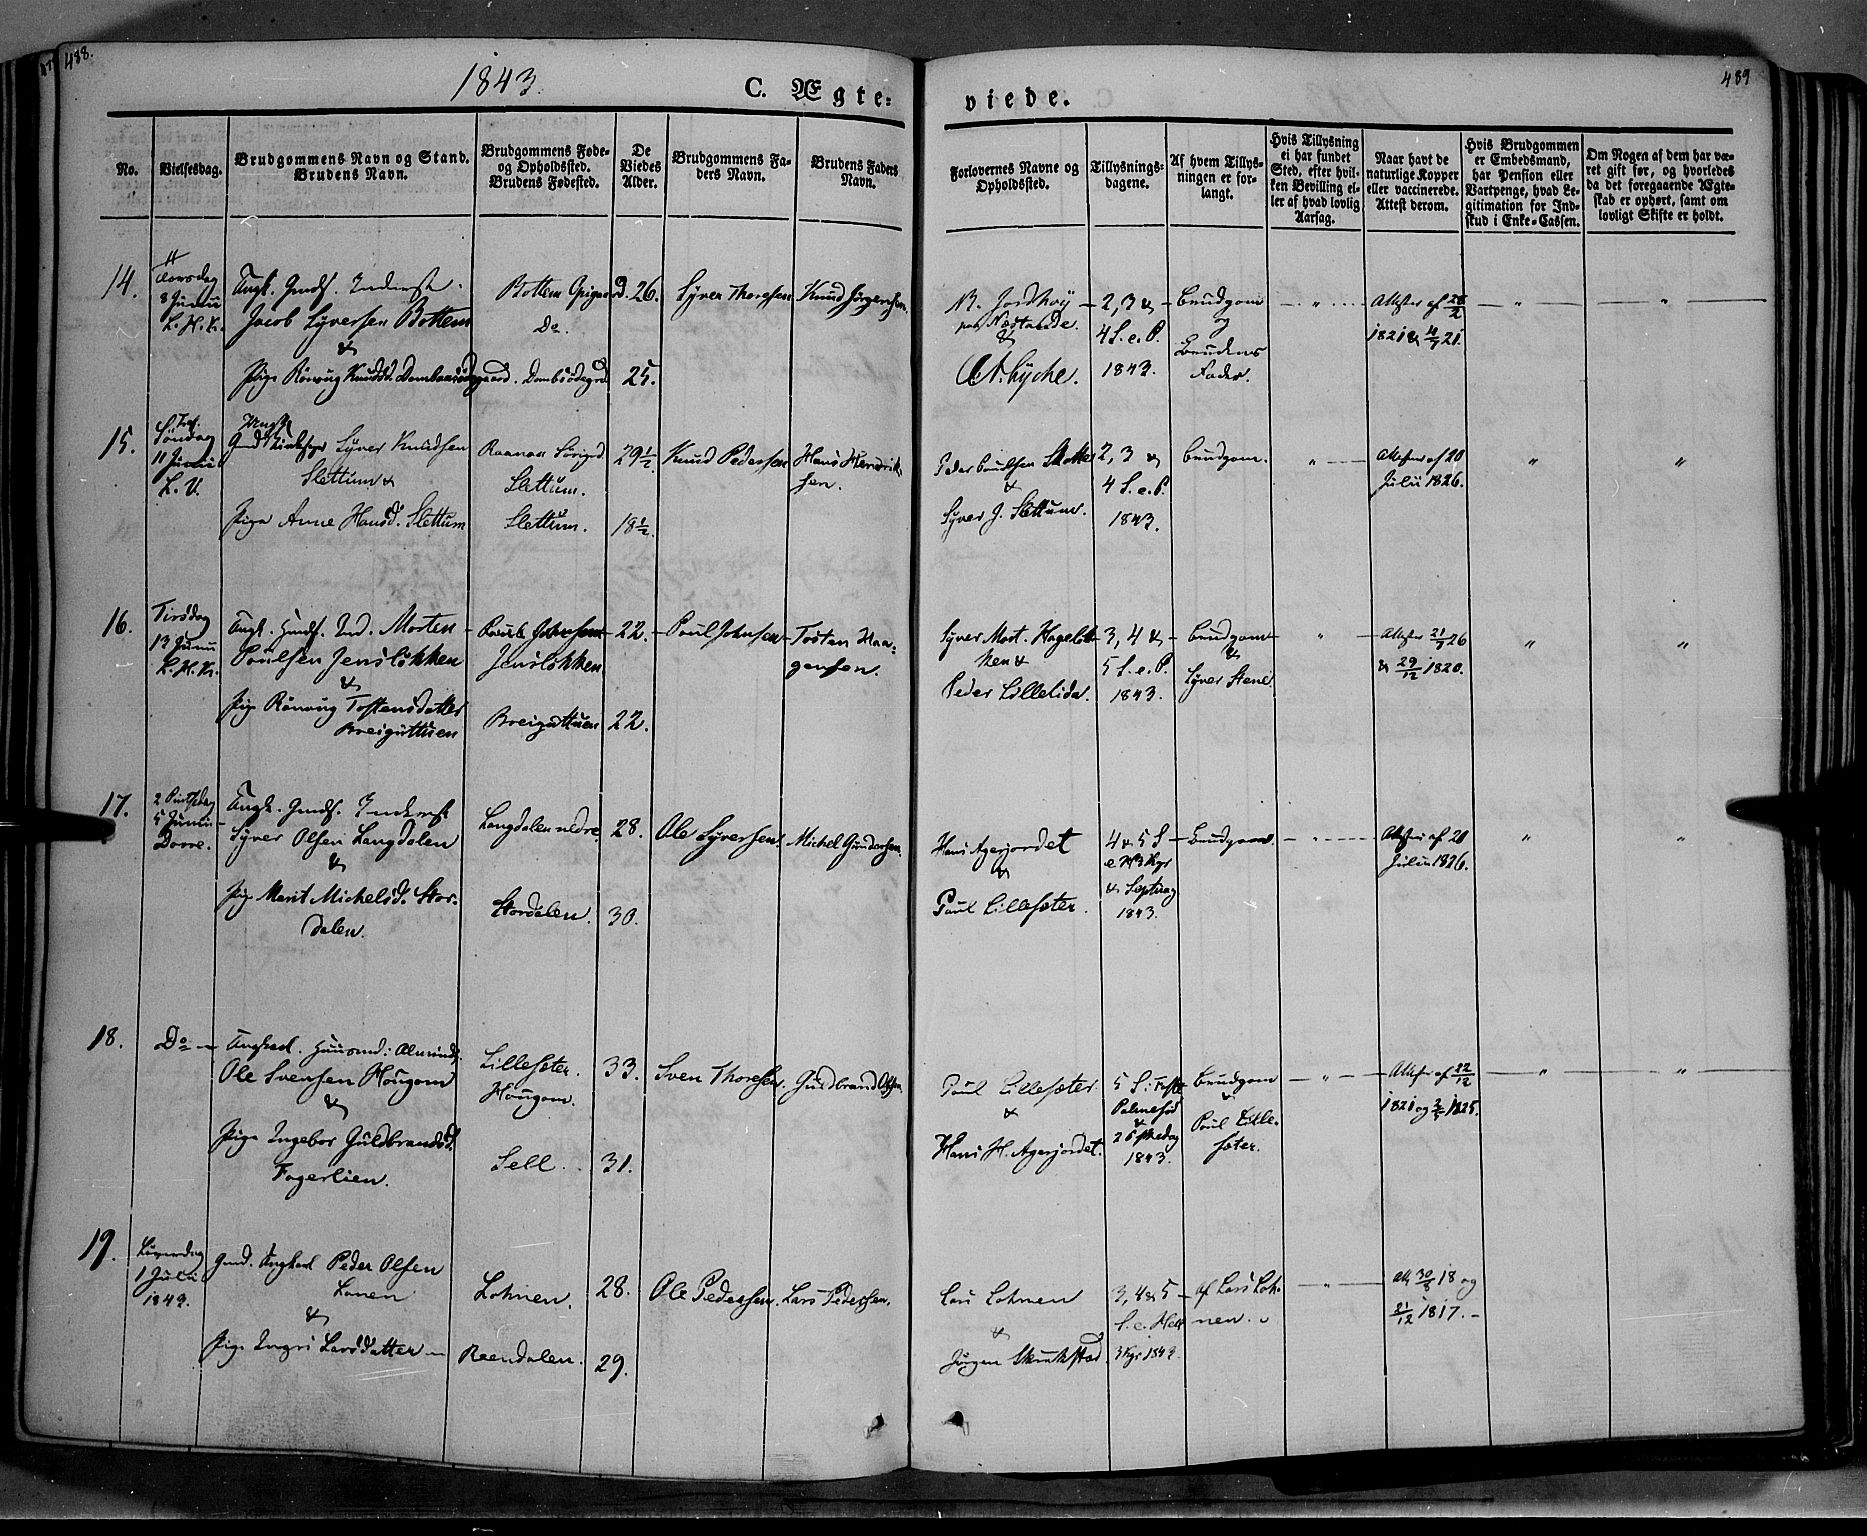 488.
489
1843.
C. Ægte-
viede.
No.
Vielsesdag.
Brudgommens Navn og Stand.
Brudens Navn.
Brudgommens Føde-
og Opholdssted.
Brudens Fødested.
De
Viedes
Alder.
Brudgommens Fa-
ders Navn.
Brudens Faders
Navn.
Forlovernes Navne og
Opholdssted.
Tillysnings-
dagene.
Af hvem Tillys-
ningen er for-
langt.
Hvis Tillysning
ei har fundet
Sted, efter hvil-
ken Bevilling el-
ler af hvad lovlig
Aarsag.
Naar havt de
naturlige Kopper
eller vaccinerede.
Attest derom.
Hvis Brudgommen
er Embedsmand,
har Pension eller
Vartpenge, hvad Le-
gitimation for Ind-
skud i Enke-Cassen.
Om Nogen af dem har væ-
ret gift før, og hvorledes
da det foregaaende Ægte-
skab er ophørt, samt om
lovligt Skifte er holdt.
14.
8 Junii
L. H. K.
Ungk. Gmdf. Inderst
Jacob Syversen Bottem
&
Pige Rönnug Knudsd.
Bottem
Do.
26.
25.
Syver Thoresen
Knud Jørgensen
N. Jordhøy
&
2, 3 &
4 S. e. P.
1843.
Brudgom
og
Brudens
Fader.
"
Attester af 28/2
1821 & 4/7 21.
"
"
15.
Söndag
11 Junii
L. V.
Syver Knudsen
Slettum &
Pige Anne Hansd. Slettum
Slettum.
Slettum.
29 1/2
18 1/2.
Knud Pedersen
Hans Hendrik-
sen.
&
Syver J. Slettum.
2, 3 &
4 S. e. P.
1843.
Brudgom.
"
Attester af 20
Julii 1826.
"
"
16.
Tirsdag
13 Junii
L. H. K.
Ungk. Huusf. Ind. Morten
Poulsen Jenslökken
&
Pige Rönnug Tostensdatter
Breiguttuen
Jenslökken
Breiguttuen
22.
22.
Poul Johnsen
Tosten Haa-
gensen.
Syver Mort. Hagelök-
ken &
Peder Lillelide.
3, 4 &
5 S. e. P.
1843.
Brudgom
&
Syver Stene
"
Attester 21/7 26
& 29/12 1820.
"
"
17.
2 Pintsedag
5 Junii
Dovre.
Ungk. Gmdf. Inderst
Syver Olsen Langdalen
&
Pige Marit Michelsd. Stor-
dalen.
Langdalen nedre
Stordalen.
28.
30.
Ole Syversen.
Michel Gundersen.
Hans Agerjordet
&
Paul Lillesæter.
4 & 5 S
e H3 Kgr
& Septuag
1843.
Brudgom.
"
Attester af 20
Julii 1826.
"
"
18.
Do
Ungkarl. Huusmd:
Ole Svensen Hougom
&
Pige Ingebor Guldbrandsd.
Fagerlien.
Lillesæter.
Hougom.
Sell.
33.
31.
Sven Thoresen.
Guldbrand Olsen.
Paul Lillesæter
&
Hans H. Agerjordet.
5 S. i Faste
Palmesød
&
1843.
Brudgom
&
Paul Lille-
sæter.
"
Attester af 22/12
1821 og 2/2 1825.
"
"
19.
Løverdag
1 Julii
1843.
Gmd. Ungkarl Peder Olsen
Lonen
&
Pige Ingri Larsdatter
Lohnen.
Raendalen.
28.
29.
Ole Pedersen.
Lars Pedersen.
Lars Lohnen
&
Jørgen Skrukstad.
3, 4 & 5
S. e. Hell
3 Kgr 1843.
Af Lars Loh-
nen.
"
Att. 30/8 18 og
21/12 1817.